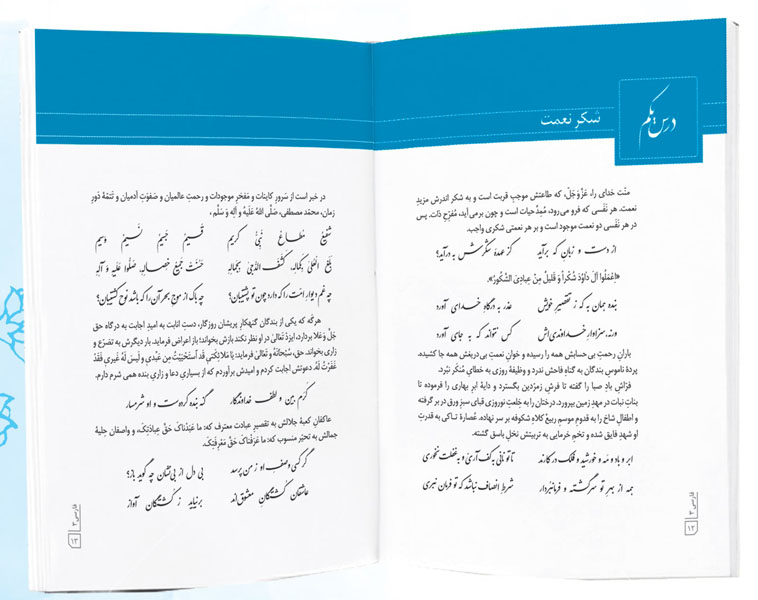 درس یکم
شکر نعمت
منّت خدای را، عَزَّ وَ جَلّ، که طاعتش موجبِ قربت است و به شکر اندرش مزیدِ
نعمت. هر نَفَسی که فرو می‌رود، مُمِدِّ حیات است و چون برمی‌آید، مُفرّحِ ذات. پس
در هر نَفَسی دو نعمت موجود است و بر هر نعمتی شکری واجب.
از دست و زبانِ که برآید کز عهدهٔ شکرش به درآید؟
«اِعْمَلُوا آلَ داوُدَ شُکْراً وَ قَلیلٌ مِنْ عِبادِیَ الشَّکُورُ».
بنده همان به که ز تقصیرِ خویش عذر به درگاهِ خدای آورد
ورنه، سزاوارِ خداوندی‌اش کس نتواند که به جای آورد
بارانِ رحمتِ بی حسابش همه را رسیده و خوانِ نعمتِ بی دریغش همه جا کشیده.
پردهٔ ناموسِ بندگان به گناهِ فاحش ندرد و وظیفهٔ روزی به خطای مُنکَر نبُرد.
فرّاشِ بادِ صبا را گفته تا فرشِ زمرّدین بگسترد و دایهٔ ابرِ بهاری را فرموده تا
بناتِ نبات در مهدِ زمین بپرورد. درختان را به خِلعتِ نوروزی قبای سبزِ ورق در بر گرفته
و اطفالِ شاخ را به قدومِ موسمِ ربیع کلاهِ شکوفه بر سر نهاده. عُصارهٔ تاکی به قدرتِ
او شهدِ فایق شده و تخمِ خرمایی به تربیتش نخلِ باسق گشته.
ابر و باد و مه و خورشید و فلک در کارند تا تو نانی به کف آریّ و به غفلت نخوری
همه از بهرِ تو سرگشته و فرمانبردار شرطِ انصاف نباشد که تو فرمان نبری
فارسی ۳
۱۲
در خبر است از سَرورِ کاینات و مَفخرِ موجودات و رحمتِ عالمیان و صفوَتِ آدمیان و تَتمّهٔ دَورِ
زمان، محمّد مصطفی، صَلَّی اللهُ عَلَیهِ وَ آلِهِ وَ سَلَّم،
شَفیعٌ مُطاعٌ نَبیٌّ کَریم قَسیمٌ جَسیمٌ نَسیمٌ وَسیم
بَلَغَ الْعُلیٰ بِکَمالِهِ، کَشَفَ الدُّجیٰ بِجَمالِهِ حَسُنَتْ جَمیعُ خِصالِهِ، صَلُّوا عَلَیْهِ وَ آلِهِ
چه غم دیوارِ امّت را که دارد چون تو پشتیبان؟ چه باک از موجِ بحر آن را که باشد نوح کشتیبان؟
هرگه که یکی از بندگانِ گنهکارِ پریشان روزگار، دستِ انابت به امیدِ اجابت به درگاهِ حق
جَلَّ وَعَلا بردارد، ایزدْ تَعالیٰ در او نظر نکند بازش بخواند؛ باز اعراض فرماید. بار دیگرش به تضرّع و
زاری بخواند. حق، سُبْحانَهُ وَ تَعالیٰ فرماید: یا مَلائِکَتی قَدِ اسْتَحْیَیْتُ مِن عَبْدی وَ لَیْسَ لَهُ غَیری فَقَدْ
غَفَرْتُ لَهُ. دعوتش اجابت کردم و امیدش برآوردم که از بسیاری دعا و زاریِ بنده همی شرم دارم.
کَرَم بین و لطفِ خداوندگار گنه بنده کرده‌ست و او شرمسار
عاکفانِ کعبهٔ جلالش به تقصیرِ عبادت معترف که: ما عَبَدْناکَ حَقَّ عِبادَتِکَ، و واصفانِ حِلیهٔ
جمالش به تحیّر منسوب که: ما عَرَفْناکَ حَقَّ مَعْرِفَتِکَ.
گر کسی وصفِ او ز من پرسد بی دل از بی‌نشان چه گوید باز؟
عاشقان کشتگانِ معشوق‌اند برنیاید ز کشتگان آواز
فارسی ۳
۱۳